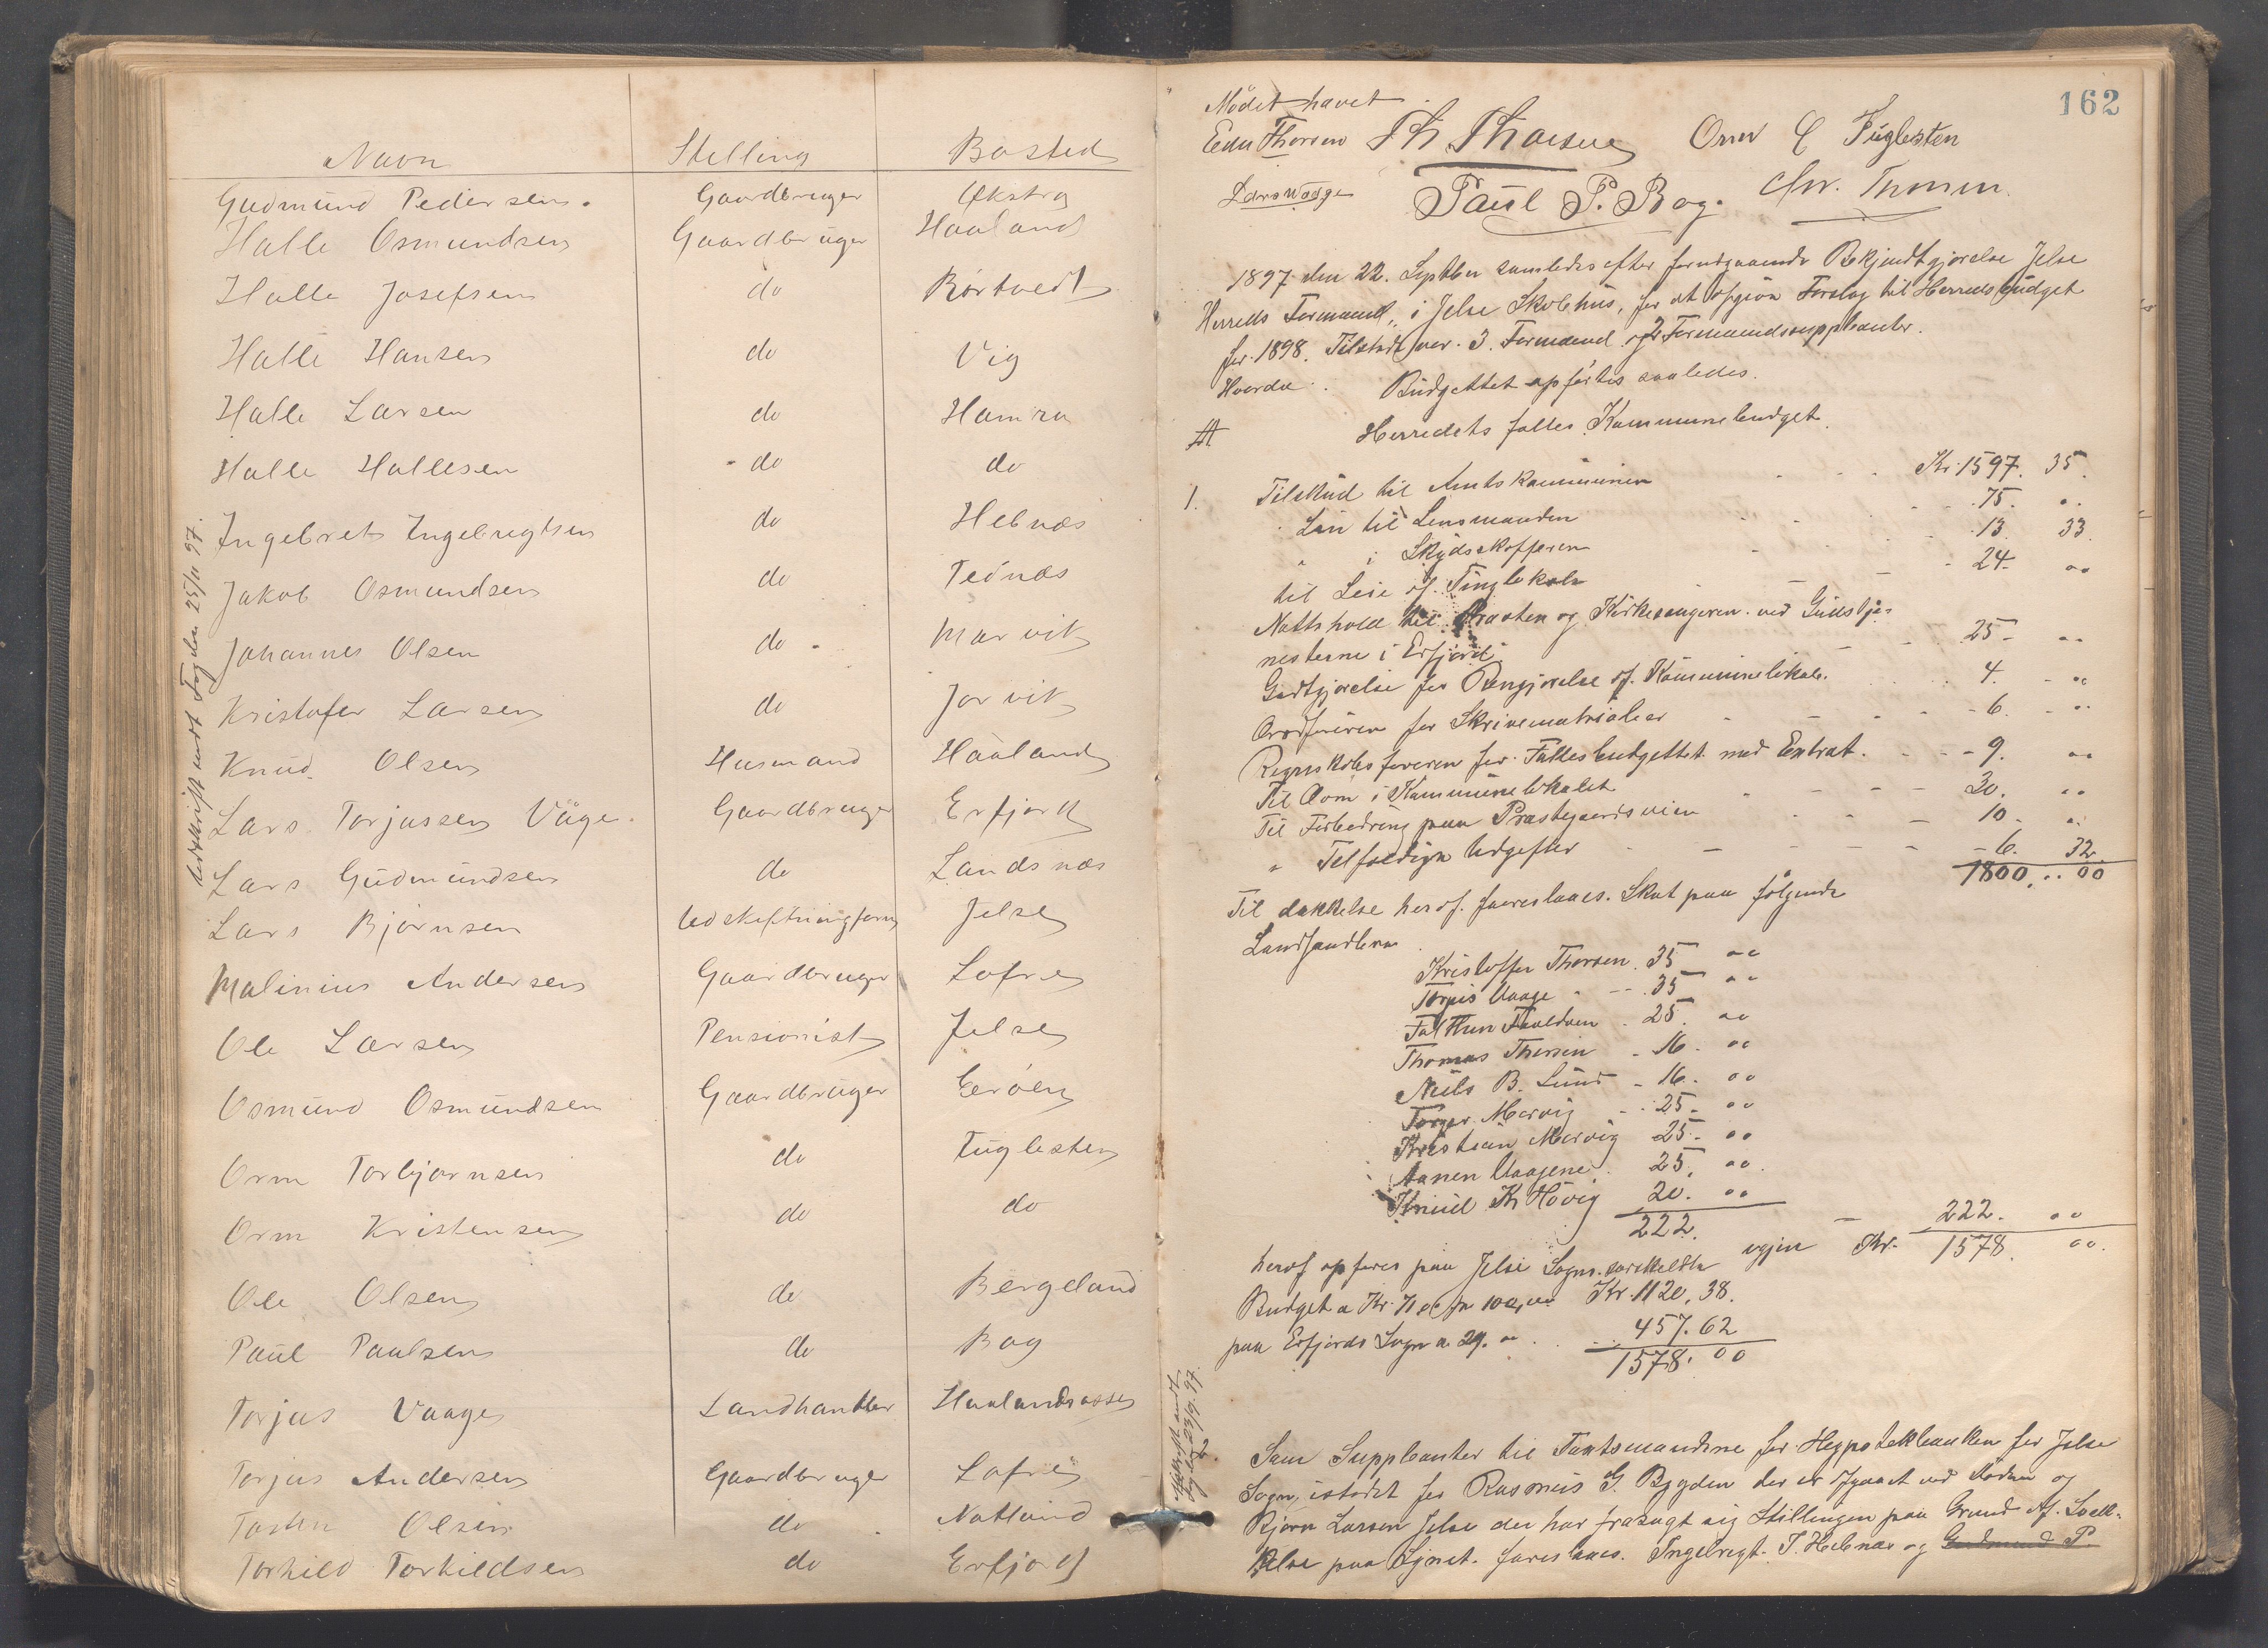 Navn Stelling Bosted
Gudmund Pedersen. Gaardbruger Økstra
Halle Osmundsen Gaardbruger Haaland
Halle Josefsen do Børtvedt
Halle Hansen do Vig
Halle Larsen do Hamra
Halle Hallesen do do
Ingebret Ingebregtsen do Hebnæs
Jakob Osmundsen do Tednæs
Johannes Olsen do Marvik
Kristofer Larsen do Jorvik
Knud Olsen Husmand Haaland
Lars Torjussen Våge. Gaardbruger Erfjord
Lars Gudmundsen do Landsnæs
Lars Bjørnsen Udskiftningform Jelse
Malinius Andersen Gaardbruger Lofre
Ole Larsen Pensionist Jelse
Osmund Osmundsen Gaardbruger Eerøen
Orm Torbjørnsen do Fuglesten
Orm Kristensen do do
Ole Olsen do Bergeland
Paul Paulsen do Bog
Torjus Vaage Landhandler Haalandsosse
Torjus Andersen Gaardbruger Lofre
Tosten Olsen do Natland
Torkild Torkildsen do Erfjord
Udskrift sendt Fogden 25/11 97.
162
Mødet hævet
Edv Thorsen Th Thorsen Orm C Fuglesten
Lars Waage Paul P. Bog. Chr. Thorsen.
1897 den 22. Septber samledes efter forudgaaende Bekjendtgjørelse Jelse
Herreds Formand., i Jelse Skolehus, for at opgjøre Forslag til Herredsbudget
for 1898. Tilstede var 3 Formænd og 2 Formandssuppleanter.
Hvorda Budgettet opførtes saaledes.
A Herredets fælles Kommunebudget.
1. Tilskud til Amtskommunen Kr. 1597. 35.
Løn til Lensmanden 75. "
" i Skydsskafferen 13. 33.
til Leie af Tinglokale 24. "
Nattshold til Præsten og Kirkesangeren ved Gudstje-
nesterne i Erfjord 25 - "
Godtgjørelse for Rengjørelse af Kommunelokale. 4. - "
Ordføreren for Skrivematrialier 6. - "
Regnskabsføreren for Fællesbudgettet med Extrat. 9. "
Til Ovn i Kommunelokalet 30. "
Til Forbedring paa Præstegaardsveien 10. "
" Tilfældige Udgifter 6. 32.
1800. 00
Til dækkelse heraf foreslaaes Skat paa følgende
Landhandlere
Kristoffer Thorsen 35 "
Torjus Vaage 35 "
25. "
Thomas Thorsen 16. "
Niels B. Lund 16. "
Torger Marvig 25. "
Kristian Marvig 25. "
Aanen Vaagene 25. "
Knud K Høvig 20. "
222. 222. "
igjen Kr. 1578. "
heraf opføres paa Jelse Sogns særskeldte
Budget a Kr. 71 pr 100,00 Kr. 1120, 38.
paa Erfjords Sogn a 29. " 457. 62
1578. 00
Udskrift sendt
Fogden 23/9. 97.
2.
Som Suppleanter til Taxtsmændene for Hypotekbanken for Jelse
Sogn, istedet for Rasmus G. Bygden der er afgaaet ved Døden og
Bjørn Larsen Jelse der har frasagt sig Stillingen paa Grund af Svæk-
kelse paa Synet foreslaaes. Ingebregt J. Hebnæs og Gudmund P.